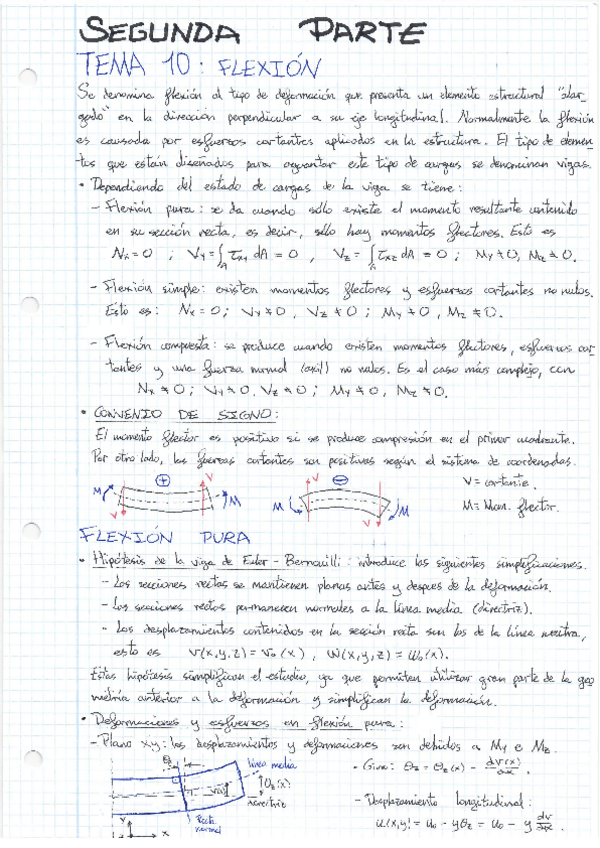 SEGUNDA PARTE
TEMA 10: FLEXIÓN
Se denomina flexión al tipo de deformación que presenta un elemento estructural "alar-
gado" en la dirección perpendicular a su eje longitudinal. Normalmente la flexión
es causada por esfuerzos cortantes aplicados en la estructura. El tipo de elemen-
tos que están diseñados para aguantar este tipo de cargas se denominan vigas.
• Dependiendo del estado de cargas de la viga se tiene:
- Flexión pura: se da cuando sólo existe el momento resultante contenido
en su sección recta, es decir, sólo hay momentos flectores. Esto es
Nx = 0 ; Vy = ∫A τxy dA = 0 , Vz = ∫A τxz dA = 0 ; My ≠ 0, Mz ≠ 0.
- Flexión simple: existen momentos flectores y esfuerzos cortantes no nulos.
Esto es: Nx = 0 ; Vy ≠ 0 , Vz ≠ 0 ; My ≠ 0 , Mz ≠ 0.
- Flexión compuesta: se produce cuando existen momentos flectores, esfuerzos cor-
tantes y una fuerza normal (axil) no nulos. Es el caso más complejo, con
Nx ≠ 0 ; Vy ≠ 0, Vz ≠ 0 ; My ≠ 0, Mz ≠ 0.
• CONVENIO DE SIGNO:
El momento flector es positivo si se produce compresión en el primer cuadrante.
Por otro lado, las fuerzas cortantes son positivas según el sistema de coordenadas.
M V + V M
M V - V M
V = cortante.
M = Mom. flector.
FLEXIÓN PURA
• Hipótesis de la viga de Euler - Bernouilli: introduce las siguientes simplificaciones.
- Las secciones rectas se mantienen planas antes y despues de la deformación.
- Las secciones rectas permanecen normales a la línea media (directriz).
- Los desplazamientos contenidos en la sección recta son los de la línea neutra,
esto es v(x,y,z) = v₀(x) , w(x,y,z) = w₀(x).
Estas hipótesis simplifican el estudio, ya que permiten utilizar gran parte de la geo
metría anterior a la deformación y simplifican la deformación.
• Deformaciones y esfuerzos en flexión pura:
- Plano xy: los desplazamientos y deformaciones son debidos a My e Mz.
línea media
θz(x)
directriz
Recta
normal
y
x
- Giro: θz = θz(x) = dv(x)/dx .
- Desplazamiento longitudinal:
u(x,y) = u₀ - yθz = u₀ - y dv/dx .